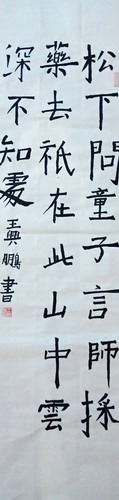 松下問童子言師採
藥去祇在此山中雲
深不知處王興鵬書